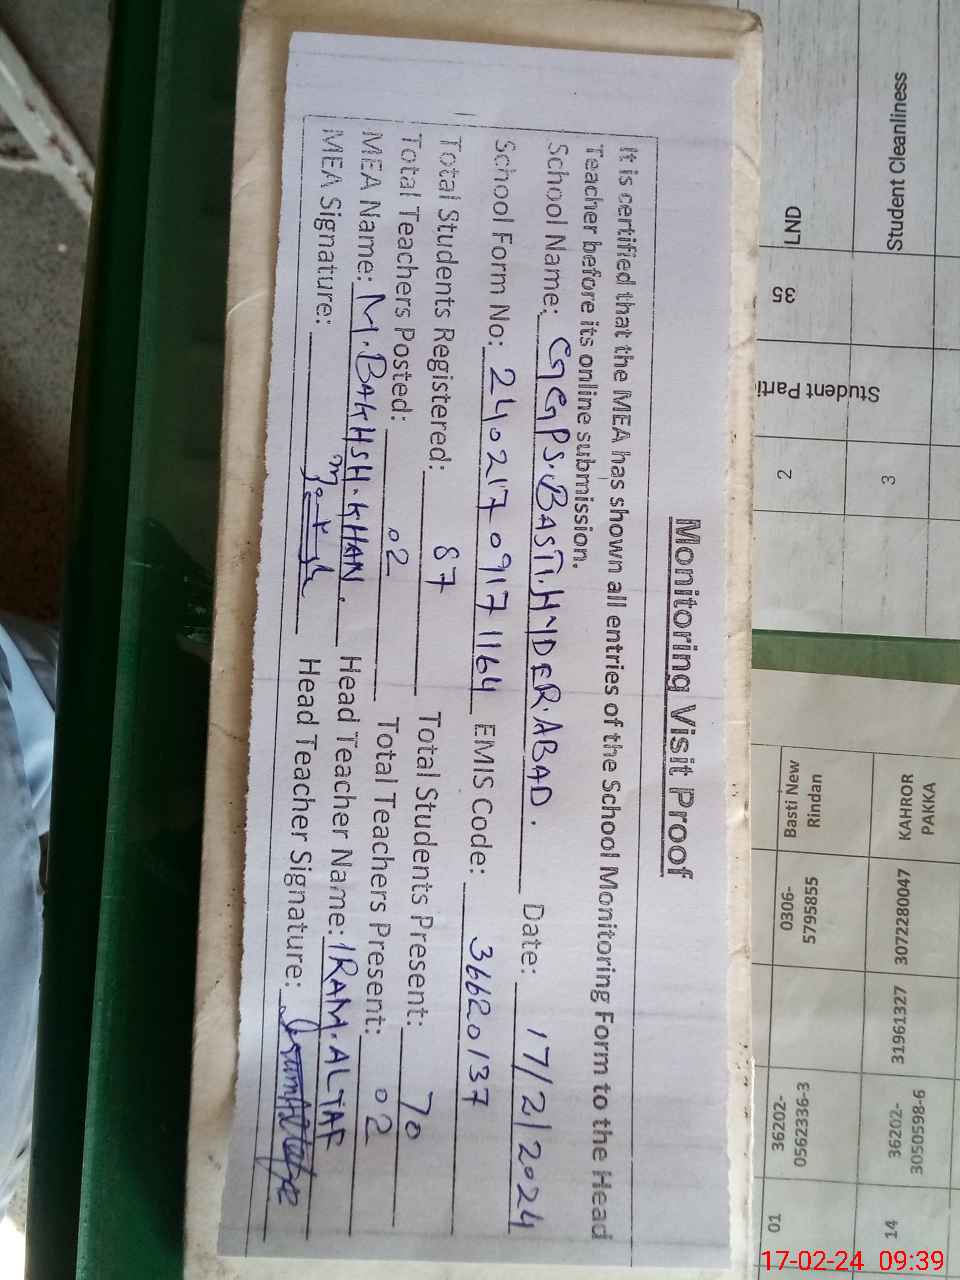 Monitoring Visit Proof
It is certified that the MEA has shown all entries of the School Monitoring Form to the Head
Teacher before its online submission.
School Name: GGPS.BASTI.HYDER.ABAD. Date: 17/2/2024
School Form No: 240217 0917 1164 EMIS Code: 36620137
Total Students Registered: 87 Total Students Present: 70
Total Teachers Posted: 02 Total Teachers Present: 02
MEA Name: M.BAKHSH.KHAN. Head Teacher Name: IRAM.ALTAF
MEA Signature: Head Teacher Signature:
LND
35
Student Parti
2
Student Cleanliness
3
Basti New
Rindan
0306-
5795855
36202-
0562336-3
01
KAHROR
PAKKA
3072280047
31961327
36202-
3050598-6
14
17-02-24 09:39